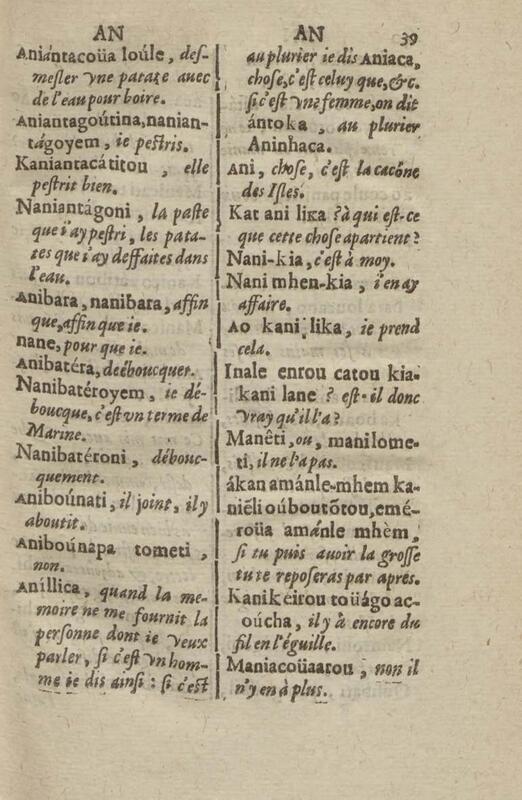 AN
Aniántacoüa loúle, des-
mesler vne patate auec
de l'eau pour boire.
Aniantagoútina, nanian-
tágoyem, ie pestris.
Kaniantacátitou, elle
pestrit bien.
Naniantágoni, la paste
que i'ay pestri, les pata-
tes que i'ay deffaites dans
l'eau.
Anibara, nanibara, affin
que, affin que ie.
nane, pour que ie.
Anibatéra, deéboucquer.
Nanibatéroyem, ie dé-
boucque, c'est vn terme de
Marine.
Nanibatéroni, débouc-
quement.
Aniboúnati, il joint, il y
aboutit.
Aniboúnapa tometi,
non.
Aníllica, quand la me-
moire ne me fournit la
personne dont ie veux
parler, si c'est vn hom-
me ie dis ainsi : si c'est
AN 39
au plurier ie dis Aniaca,
chose, c'est celuy que, &c.
si c'est vne femme, on dit
ántoka, au plurier
Aninhaca.
Ani, chose, c'est la cacône
des Isles.
Kat ani lika ? à qui est-ce
que cette chose apartient ?
Nani-kia, c'est à moy.
Nani mhen-kia, i'en ay
affaire.
Ao kani lika, ie prend
cela.
Inale enrou catou kia-
kani lane ? est-il donc
vray qu'il l'a ?
Manêti, ou, manilome-
ti, il ne l'a pas.
ákan amánle-mhem ka-
niéli oúboutõtou, emé-
roüa amánle mhèm,
si tu puis auoir la grosse
tu te reposeras par apres.
Kanikeirou toüágo ac-
oúcha, il y à encore du
fil en l'éguille.
Maniacoüaarou, non il
n'y en à plus.